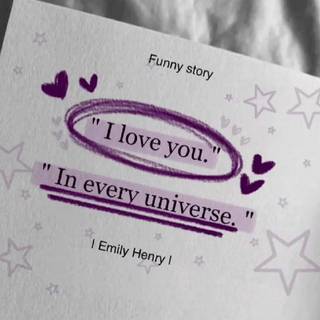 Funny story
" I love you."
" In every universe. "
| Emily Henry |